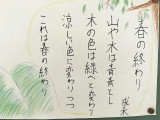 春の終わり
成未
山や木は青青とし
木の色は緑へと変わり
涼しい色に変わりつつ
これは春の終わり